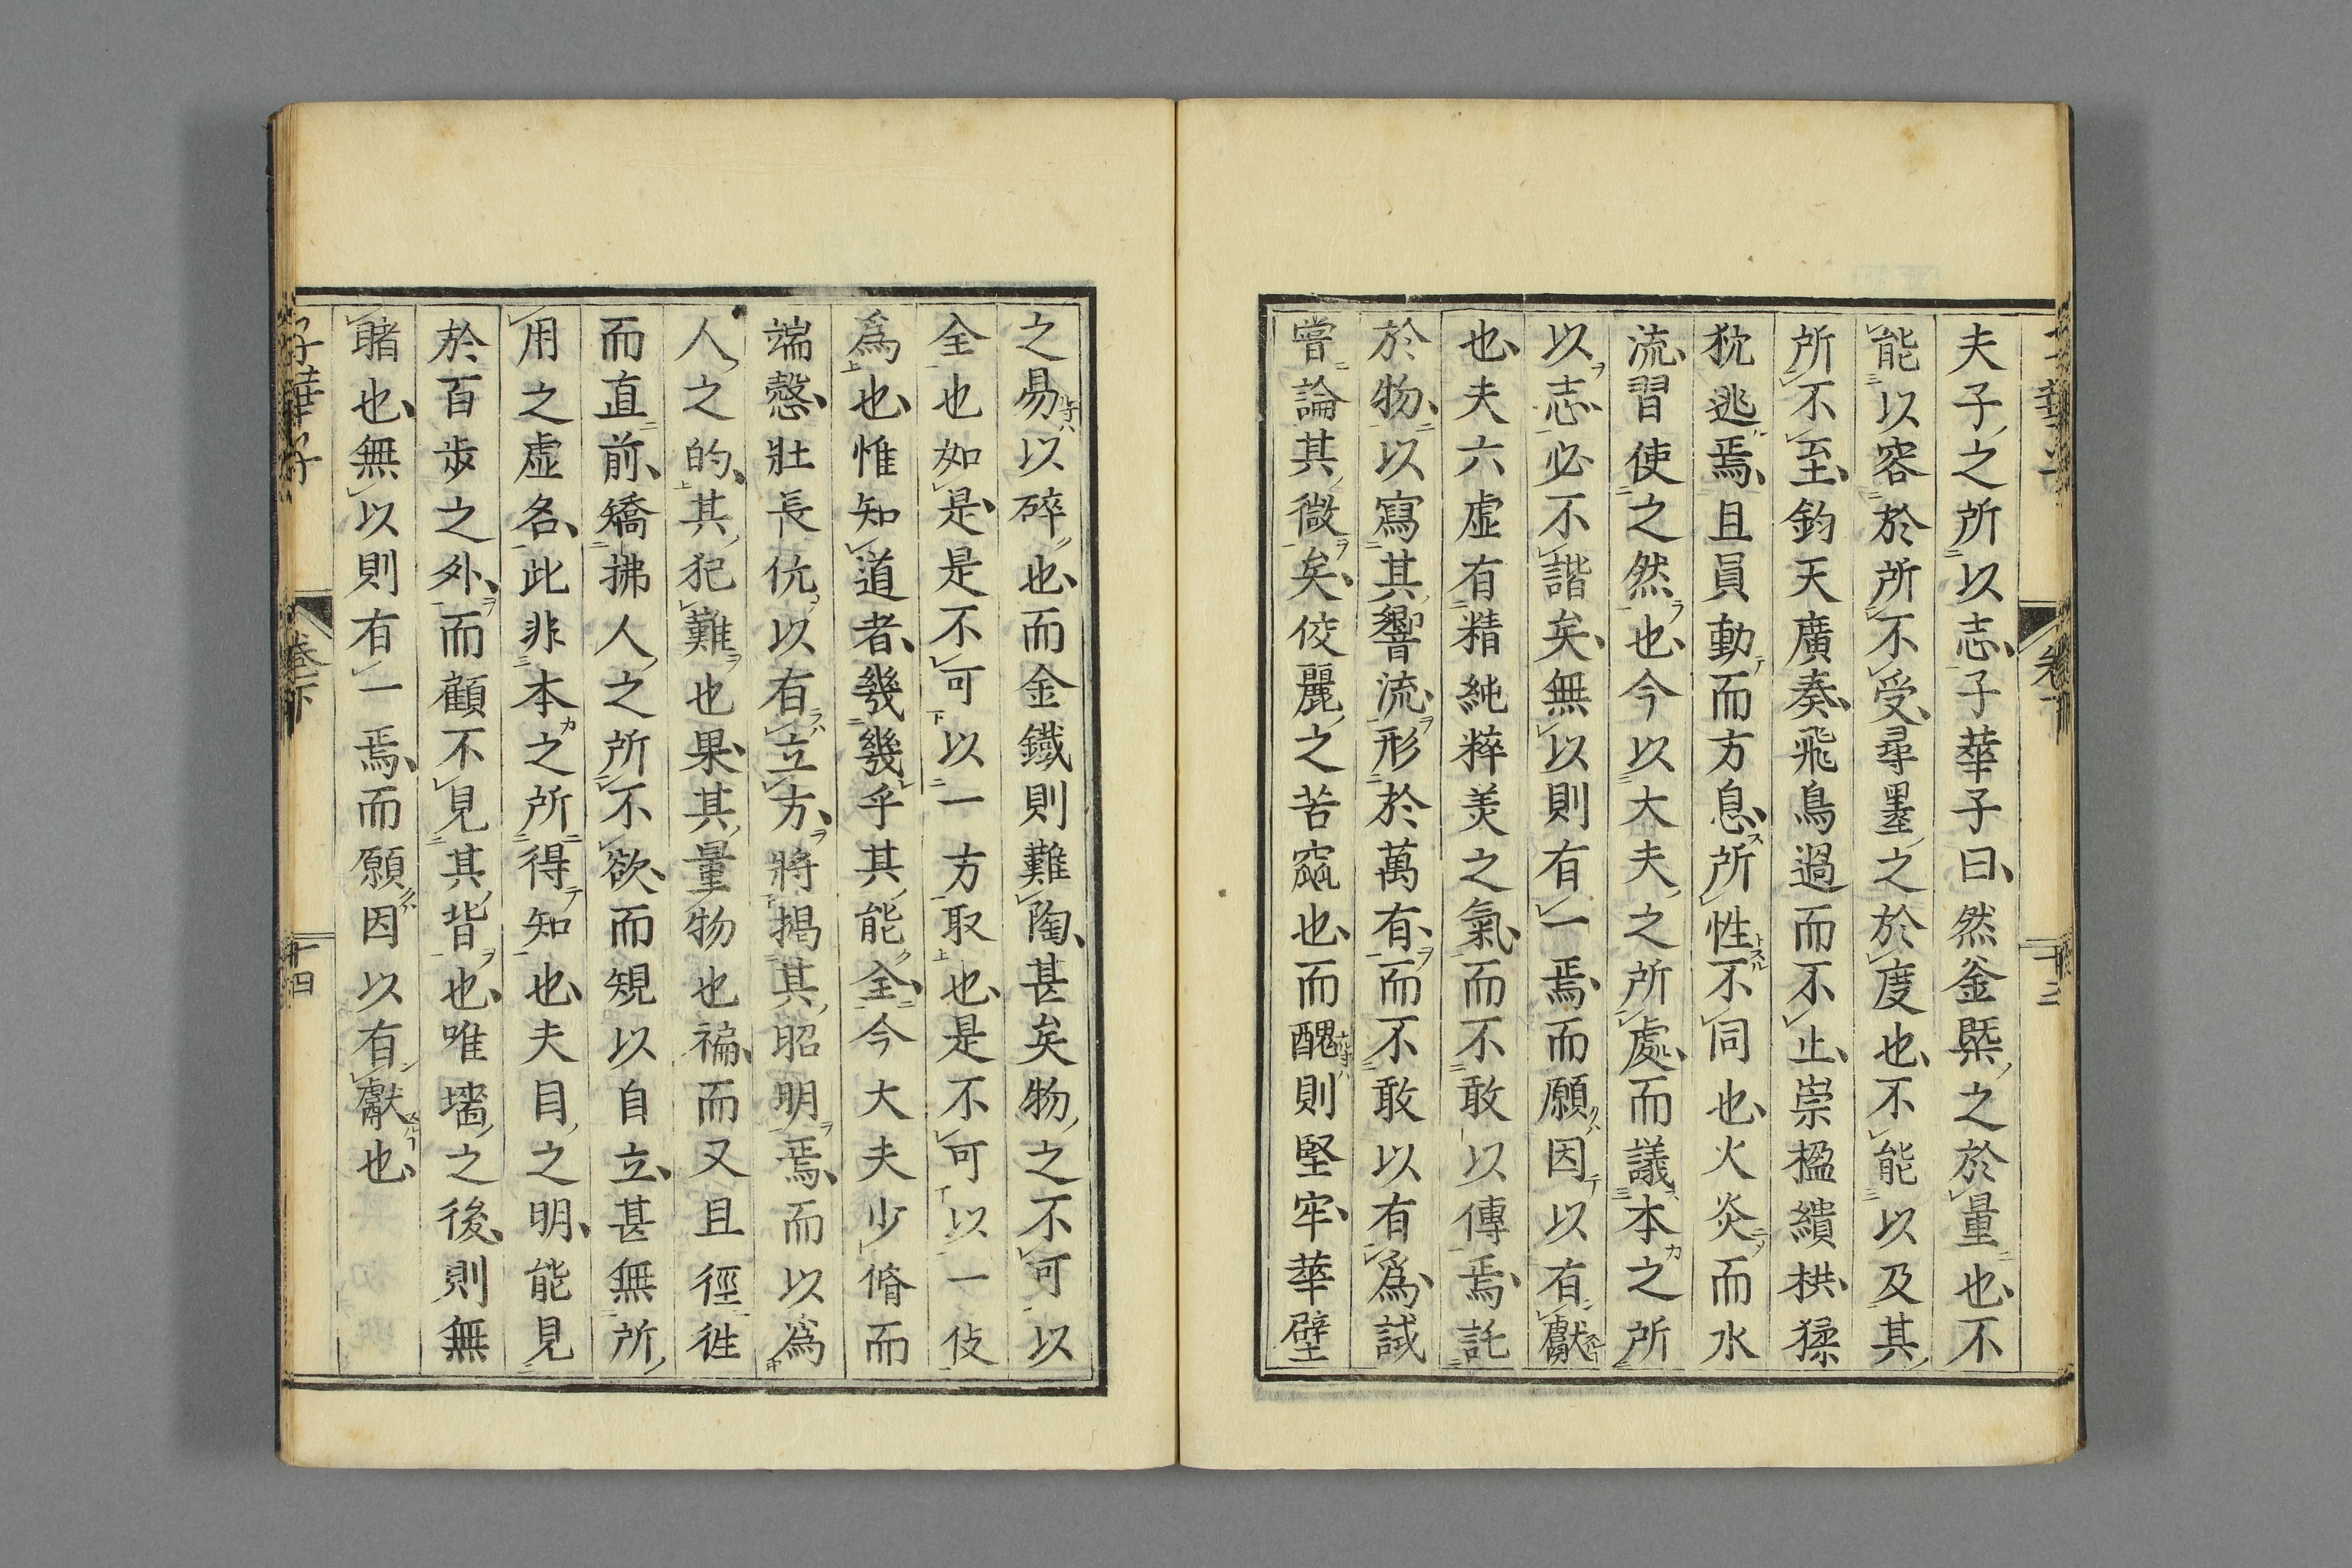 夫子之所以志子華子曰然釜槩之於量也不
能以容於所不受尋墨之於度也不能以及其
所不至鈞天廣奏飛鳥過而不止崇楹繢栱猱
狖逃焉且員動而方息所性不同也火炎而水
流習使之然也今以大夫之所處而議本之所
以志必不諧矣無以則有一焉而願因以有獻
也夫六虛有精純粹美之氣而不敢以傳焉託
於物以寫其響流形於萬有而不敢以有爲試
嘗論其微矣佼麗之苦窳也而醜則堅牢華壁
之易以碎也而金鐵則難陶甚矣物之不可以
全也如是是不可以一方取也是不可以一伎
爲也惟知道者幾幾乎其能全今大夫少脩而
端慤壯長伉以有立方將揭其昭明焉而以爲
人之的其犯難也果其量物也褊而又且徑徃
而直前矯拂人之所不欲而規以自立甚無所
用之虛名此非本之所得知也夫目之明能見
於百步之外而顧不見其背也唯墻之後則無
睹也無以則有一焉而願因以有獻也
子華子
卷下
十四